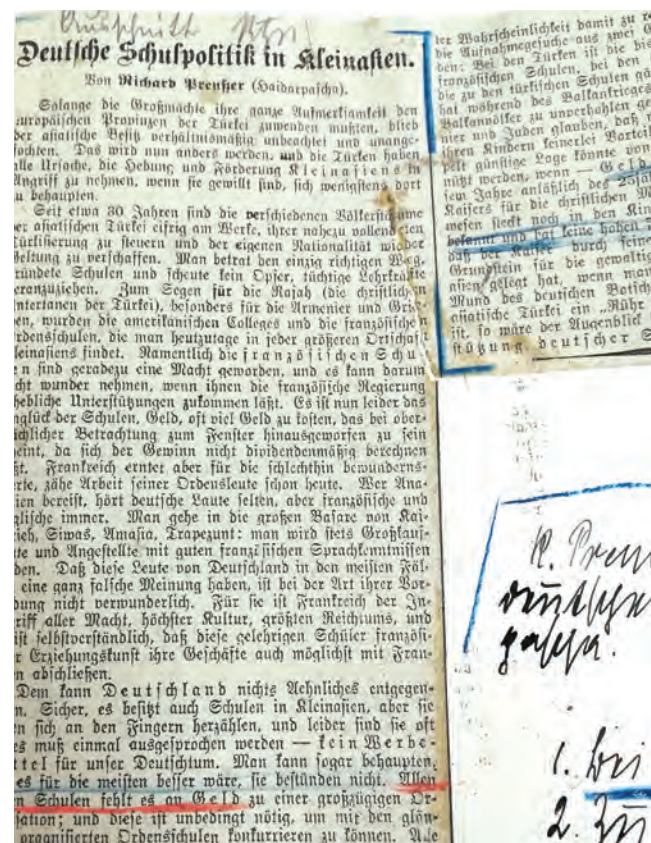 Ausschnitt
Deutsche Schulpolitik in Kleinasien.
Von Richard Preußer (Haidarpascha).
Solange die Großmächte ihre ganze Aufmerksamkeit den
europäischen Provinzen der Türkei zuwenden mußten, blieb
der asiatische Besitz verhältnismäßig unbeachtet und unange-
fochten. Das wird nun anders werden, und die Türken haben
alle Ursache, die Hebung und Förderung Kleinasiens in
Angriff zu nehmen, wenn sie gewillt sind, sich wenigstens dort
zu behaupten.
Seit etwa 30 Jahren sind die verschiedenen Völkerstämme
der asiatischen Türkei eifrig am Werke, ihrer nahezu vollendeten
Türkifizierung zu steuern und der eigenen Nationalität wieder
Geltung zu verschaffen. Man betrat den einzig richtigen Weg,
gründete Schulen und scheute kein Opfer, tüchtige Lehrkräfte
heranzuziehen. Zum Segen für die Rajah (die christlichen
Untertanen der Türkei), besonders für die Armenier und Grie-
chen, wurden die amerikanischen Colleges und die französischen
Ordensschulen, die man heutzutage in jeder größeren Ortschaft
Kleinasiens findet. Namentlich die französischen Schu-
en sind geradezu eine Macht geworden, und es kann darum
cht wunder nehmen, wenn ihnen die französische Regierung
hebliche Unterstützungen zukommen läßt. Es ist nun leider das
nglück der Schulen, Geld, oft viel Geld zu kosten, das bei ober-
ächlicher Betrachtung zum Fenster hinausgeworfen zu sein
eint, da sich der Gewinn nicht dividendenmäßig berechnen
ßt. Frankreich erntet aber für die schlechthin bewunderns-
erte, zähe Arbeit seiner Ordensleute schon heute. Wer Ana-
ien bereist, hört deutsche Laute selten, aber französische und
glische immer. Man gehe in die großen Basare von Kai-
rieh, Siwas, Amasia, Trapezunt: man wird stets Großkauf-
te und Angestellte mit guten französischen Sprachkenntnissen
den. Daß diese Leute von Deutschland in den meisten Fäl-
eine ganz falsche Meinung haben, ist bei der Art ihrer Vor-
dung nicht verwunderlich. Für sie ist Frankreich der In-
riff aller Macht, höchster Kultur, größten Reichtums, und
ist selbstverständlich, daß diese gelehrigen Schüler französi-
r Erziehungskunst ihre Geschäfte auch möglichst mit Fran-
n abschließen.
Dem kann Deutschland nichts Aehnliches entgegen-
n. Sicher, es besitzt auch Schulen in Kleinasien, aber sie
en sich an den Fingern herzählen, und leider sind sie oft
es muß einmal ausgesprochen werden — kein Werbe-
ttel für unser Deutschtum. Man kann sogar behaupten,
es für die meisten besser wäre, sie bestünden nicht. Allen
n Schulen fehlt es an Geld zu einer großzügigen Or-
isation; und diese ist unbedingt nötig, um mit den glän-
organisierten Ordensschulen konkurrieren zu können. Alle
ler Wahrscheinlichkeit damit zu
die Aufnahmegesuche aus zwei
den: Bei den Türken ist die bis
französischen Schulen, bei den
die zu den türkischen Schulen
hat während des Balkankrieges
Balkanvölker zu unverhohlen
nier und Juden glauben, daß
ihren Kindern keinerlei Vorteil
pelt günstige Lage könnte von
nützt werden, wenn — Geld
sem Jahre anläßlich des
Kaisers für die christlichen
wesen steckt noch in den
bekannt und hat keine hohen
daß der Kaiser durch seine
Grundstein für die gewaltig
asien gelegt hat, wenn man
Mund des deutschen Botsch
asiatische Türkei ein „Rühr
ist, so wäre der Augenblick
stützung deutscher S
R. Preu
deutsche
pascha.
1. bei
2. Zu